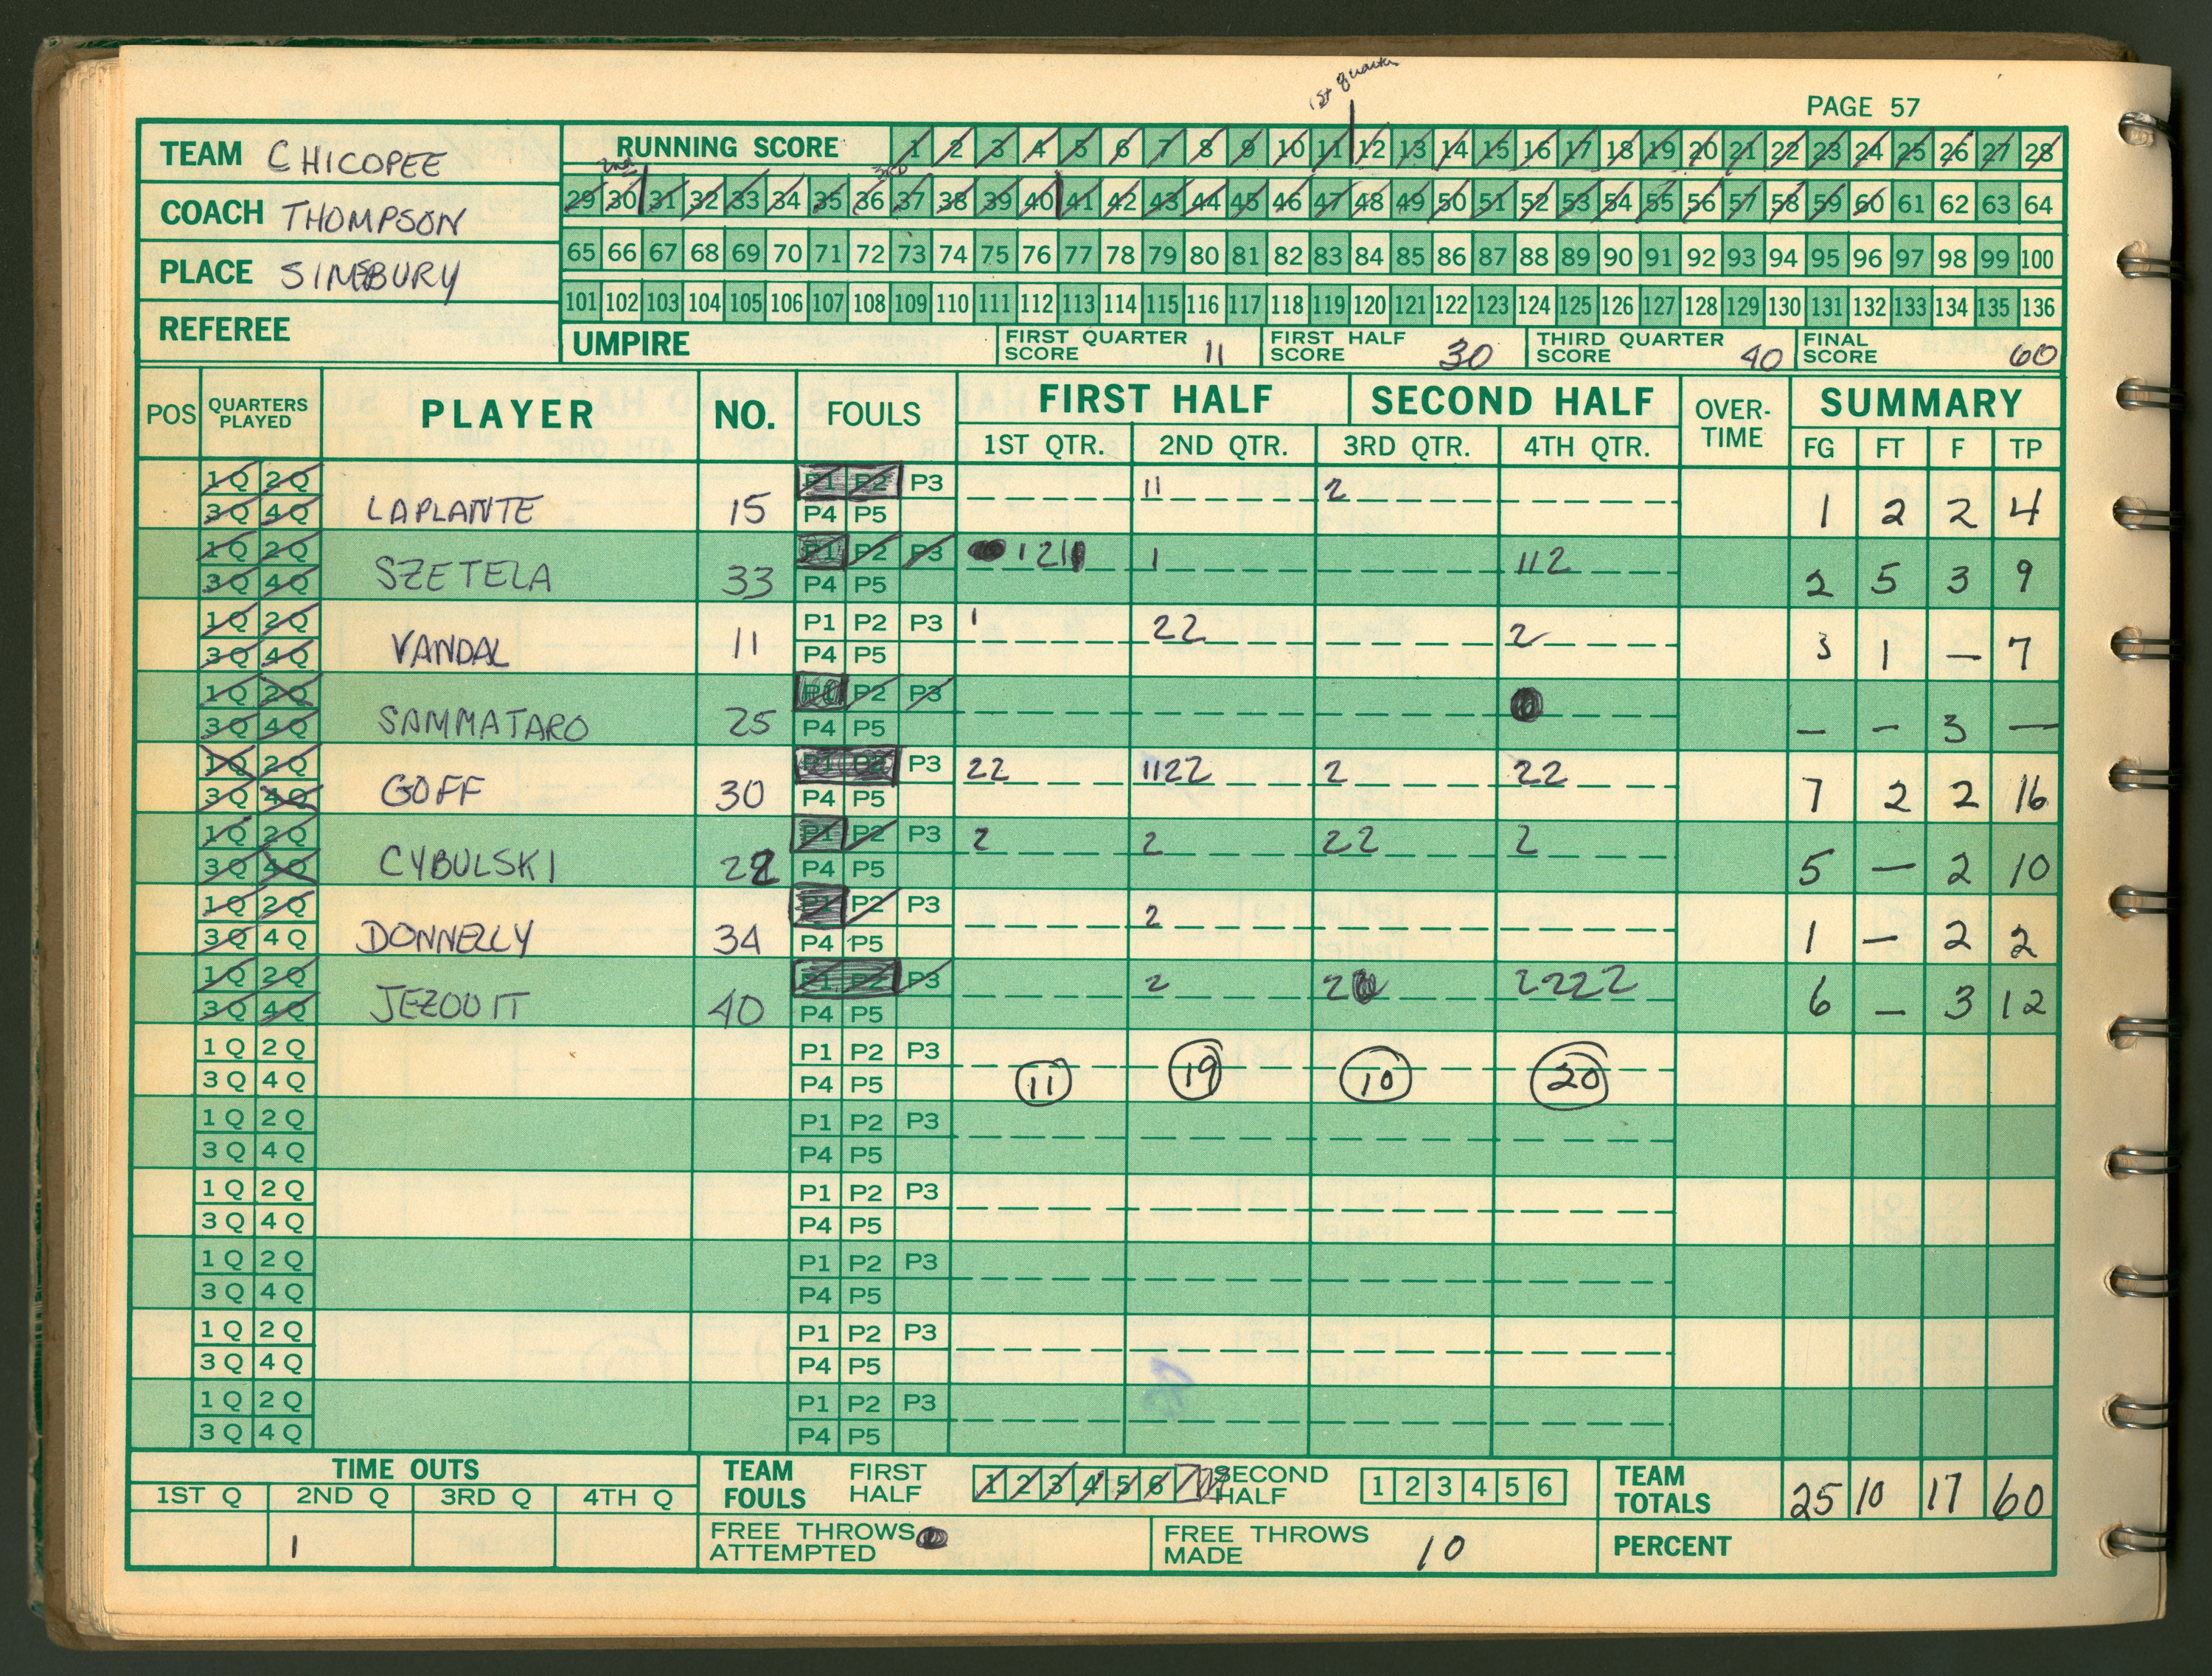 1st quarter
PAGE 57
TEAM CHICOPEE
RUNNING SCORE 1 2 3 4 5 6 7 8 9 10 11 12 13 14 15 16 17 18 19 20 21 22 23 24 25 26 27 28
2nd 3rd
COACH THOMPSON
29 30 31 32 33 34 35 36 37 38 39 40 41 42 43 44 45 46 47 48 49 50 51 52 53 54 55 56 57 58 59 60 61 62 63 64
PLACE SIMSBURY
65 66 67 68 69 70 71 72 73 74 75 76 77 78 79 80 81 82 83 84 85 86 87 88 89 90 91 92 93 94 95 96 97 98 99 100
101 102 103 104 105 106 107 108 109 110 111 112 113 114 115 116 117 118 119 120 121 122 123 124 125 126 127 128 129 130 131 132 133 134 135 136
REFEREE
UMPIRE
FIRST QUARTER SCORE 11
FIRST HALF SCORE 30
THIRD QUARTER SCORE 40
FINAL SCORE 60
POS QUARTERS PLAYED PLAYER NO. FOULS FIRST HALF SECOND HALF OVER-TIME SUMMARY
1ST QTR. 2ND QTR. 3RD QTR. 4TH QTR. FG FT F TP
1Q 2Q P1 P2 P3 11 2
3Q 4Q LAPLANTE 15 P4 P5 1 2 2 4
1Q 2Q P1 P2 P3 1 2 1 1 1 1 1 2
3Q 4Q SZETELA 33 P4 P5 2 5 3 9
1Q 2Q P1 P2 P3 1 22 2
3Q 4Q VANDAL 11 P4 P5 3 1 — 7
1Q 2Q P1 P2 P3
3Q 4Q SAMMATARO 25 P4 P5 — — 3 —
1Q 2Q P1 P2 P3 22 1122 2 22
3Q 4Q GOFF 30 P4 P5 7 2 2 16
1Q 2Q P1 P2 P3 2 2 22 2
3Q 4Q CYBULSKI 22 P4 P5 5 — 2 10
1Q 2Q P1 P2 P3 2
3Q 4Q DONNELLY 34 P4 P5 1 — 2 2
1Q 2Q P1 P2 P3 2 2 2222
3Q 4Q JEZOUIT 40 P4 P5 6 — 3 12
1Q 2Q P1 P2 P3
3Q 4Q P4 P5 11 19 10 20
1Q 2Q P1 P2 P3
3Q 4Q P4 P5
1Q 2Q P1 P2 P3
3Q 4Q P4 P5
1Q 2Q P1 P2 P3
3Q 4Q P4 P5
1Q 2Q P1 P2 P3
3Q 4Q P4 P5
1Q 2Q P1 P2 P3
3Q 4Q P4 P5
TIME OUTS
1ST Q 2ND Q 3RD Q 4TH Q
1
TEAM FOULS FIRST HALF 1 2 3 4 5 6 7 SECOND HALF 1 2 3 4 5 6
TEAM TOTALS 25 10 17 60
FREE THROWS ATTEMPTED
FREE THROWS MADE 10
PERCENT